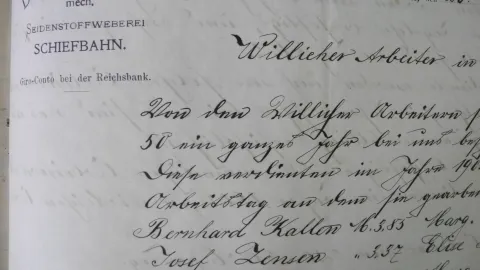 mech.
SEIDENSTOFFWEBEREI
SCHIEFBAHN.
Giro-Conto bei der Reichsbank.
Willicher Arbeiter in
Von den Willicher Arbeitern
50 ein ganzes Jahr bei uns
Diese verdienten im Jahre
Arbeitstag an dem sie gearbei
Bernhard Kallen M. 3.85 Marg.
Josef Jensen " 3.37 Elise